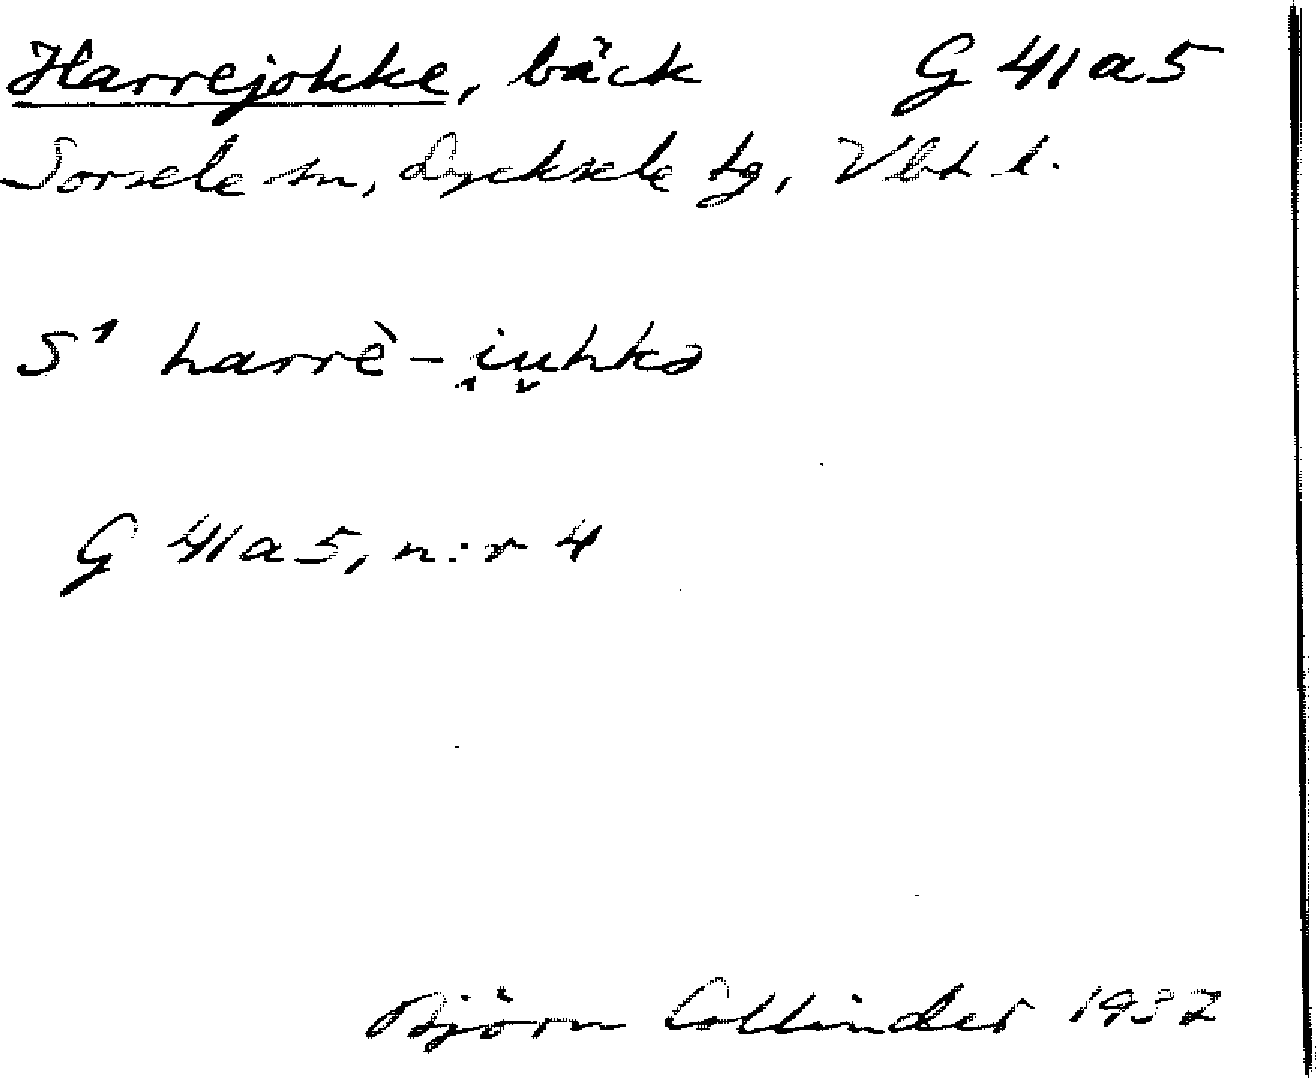 Harrejokke, bäck G 41 a 5
Sorsele sn, Lycksele tg, Vbt l.
S¹ harrè-i̭u̬hkə
G 41 a 5, n:r 4
Björn Collinder 1937